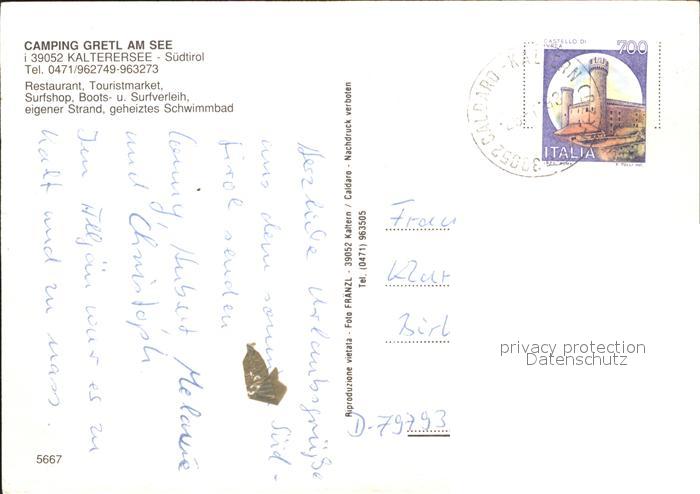 CAMPING GRETL AM SEE
i 39052 KALTERERSEE - Südtirol
Tel. 0471/962749-963273
Restaurant, Touristmarket,
Surfshop, Boots- u. Surfverleih,
eigener Strand, geheiztes Schwimmbad
Herzliche Urlaubsgrüße
aus dem Süd-
tirol senden
Conny, Hubert Melanie
und Christoph
Im Allgäu war es zu
kalt und zu nass.
5667
Riproduzione vietata - Foto FRANZL - 39052 Kaltern / Caldaro - Nachdruck verboten
Tel. (0471) 963505
CASTELLO DI
IVREA
700
ITALIA
39052 CALDARO - KALTERN
Frau
Klar
Birl
D-79793
privacy protection
Datenschutz